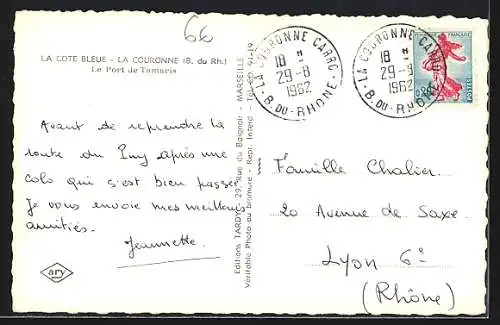 6€
LA COTE BLEUE - LA COURONNE (B. du Rh.)
Le Port de Tamaris
Avant de reprendre la
route du Puy après une
colo qui s'est bien passée
Je vous envoie mes meilleures
amitiés.
Jeannette.
ary
Editions TARDY - 29, Rue du Baignoir - MARSEILLE - Tél. 60 91-19
Véritable Photo au Bromure - Repr. Interd.
LA COURONNE CARRO
18 H
29-8
1962
B. DU-RHONE
LA COURONNE CARRO
18 H
29-8
1962
B. DU-RHONE
FRANÇAISE
POSTES
Famille Chalier.
20 Avenue de Saxe.
Lyon 6e
(Rhône)